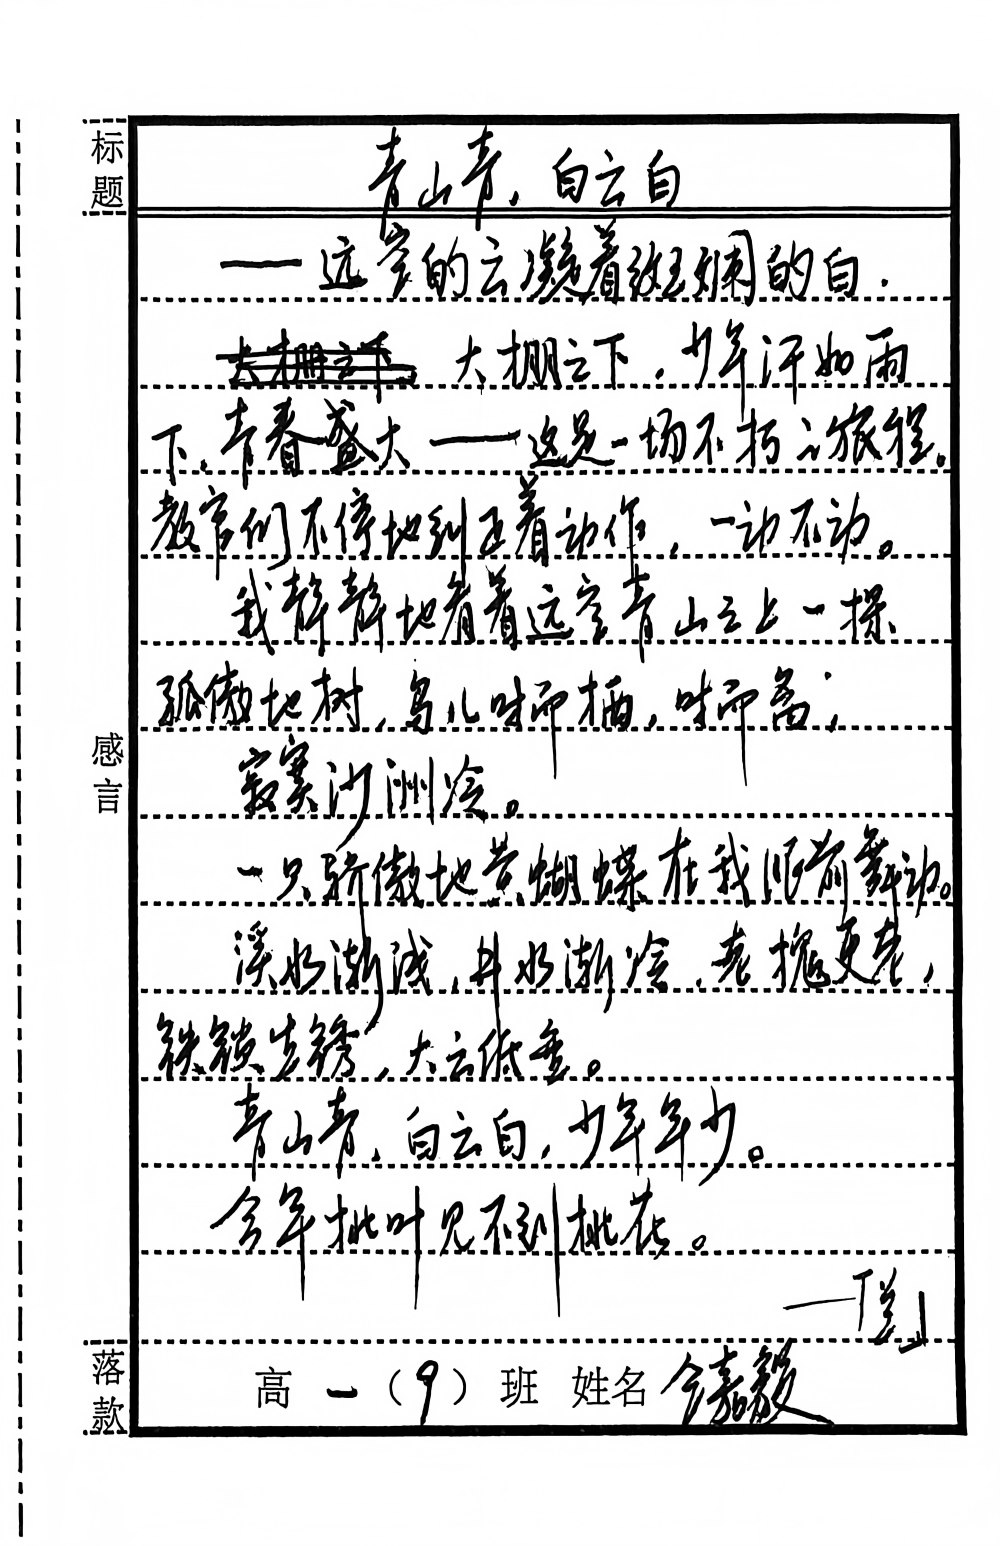 标题
青山青，白云白
——远空的云凝着斑斓的白.
大棚之下 大棚之下，少年汗如雨
下，青春盛大——这是一场不朽之旅程。
教官们不停地纠正着动作，一动不动。
我静静地看着远空青山之上一棵
孤傲地树，鸟儿时而栖，时而离；
寂寞沙洲冷。
一只骄傲地黄蝴蝶在我眼前舞动。
溪水渐浅，井水渐冷，老槐更老，
铁锁生锈，大云低垂。
青山青，白云白，少年年少。
今年桃叶见不到桃花。
感言
落款
高一（9）班 姓名 嘉毅